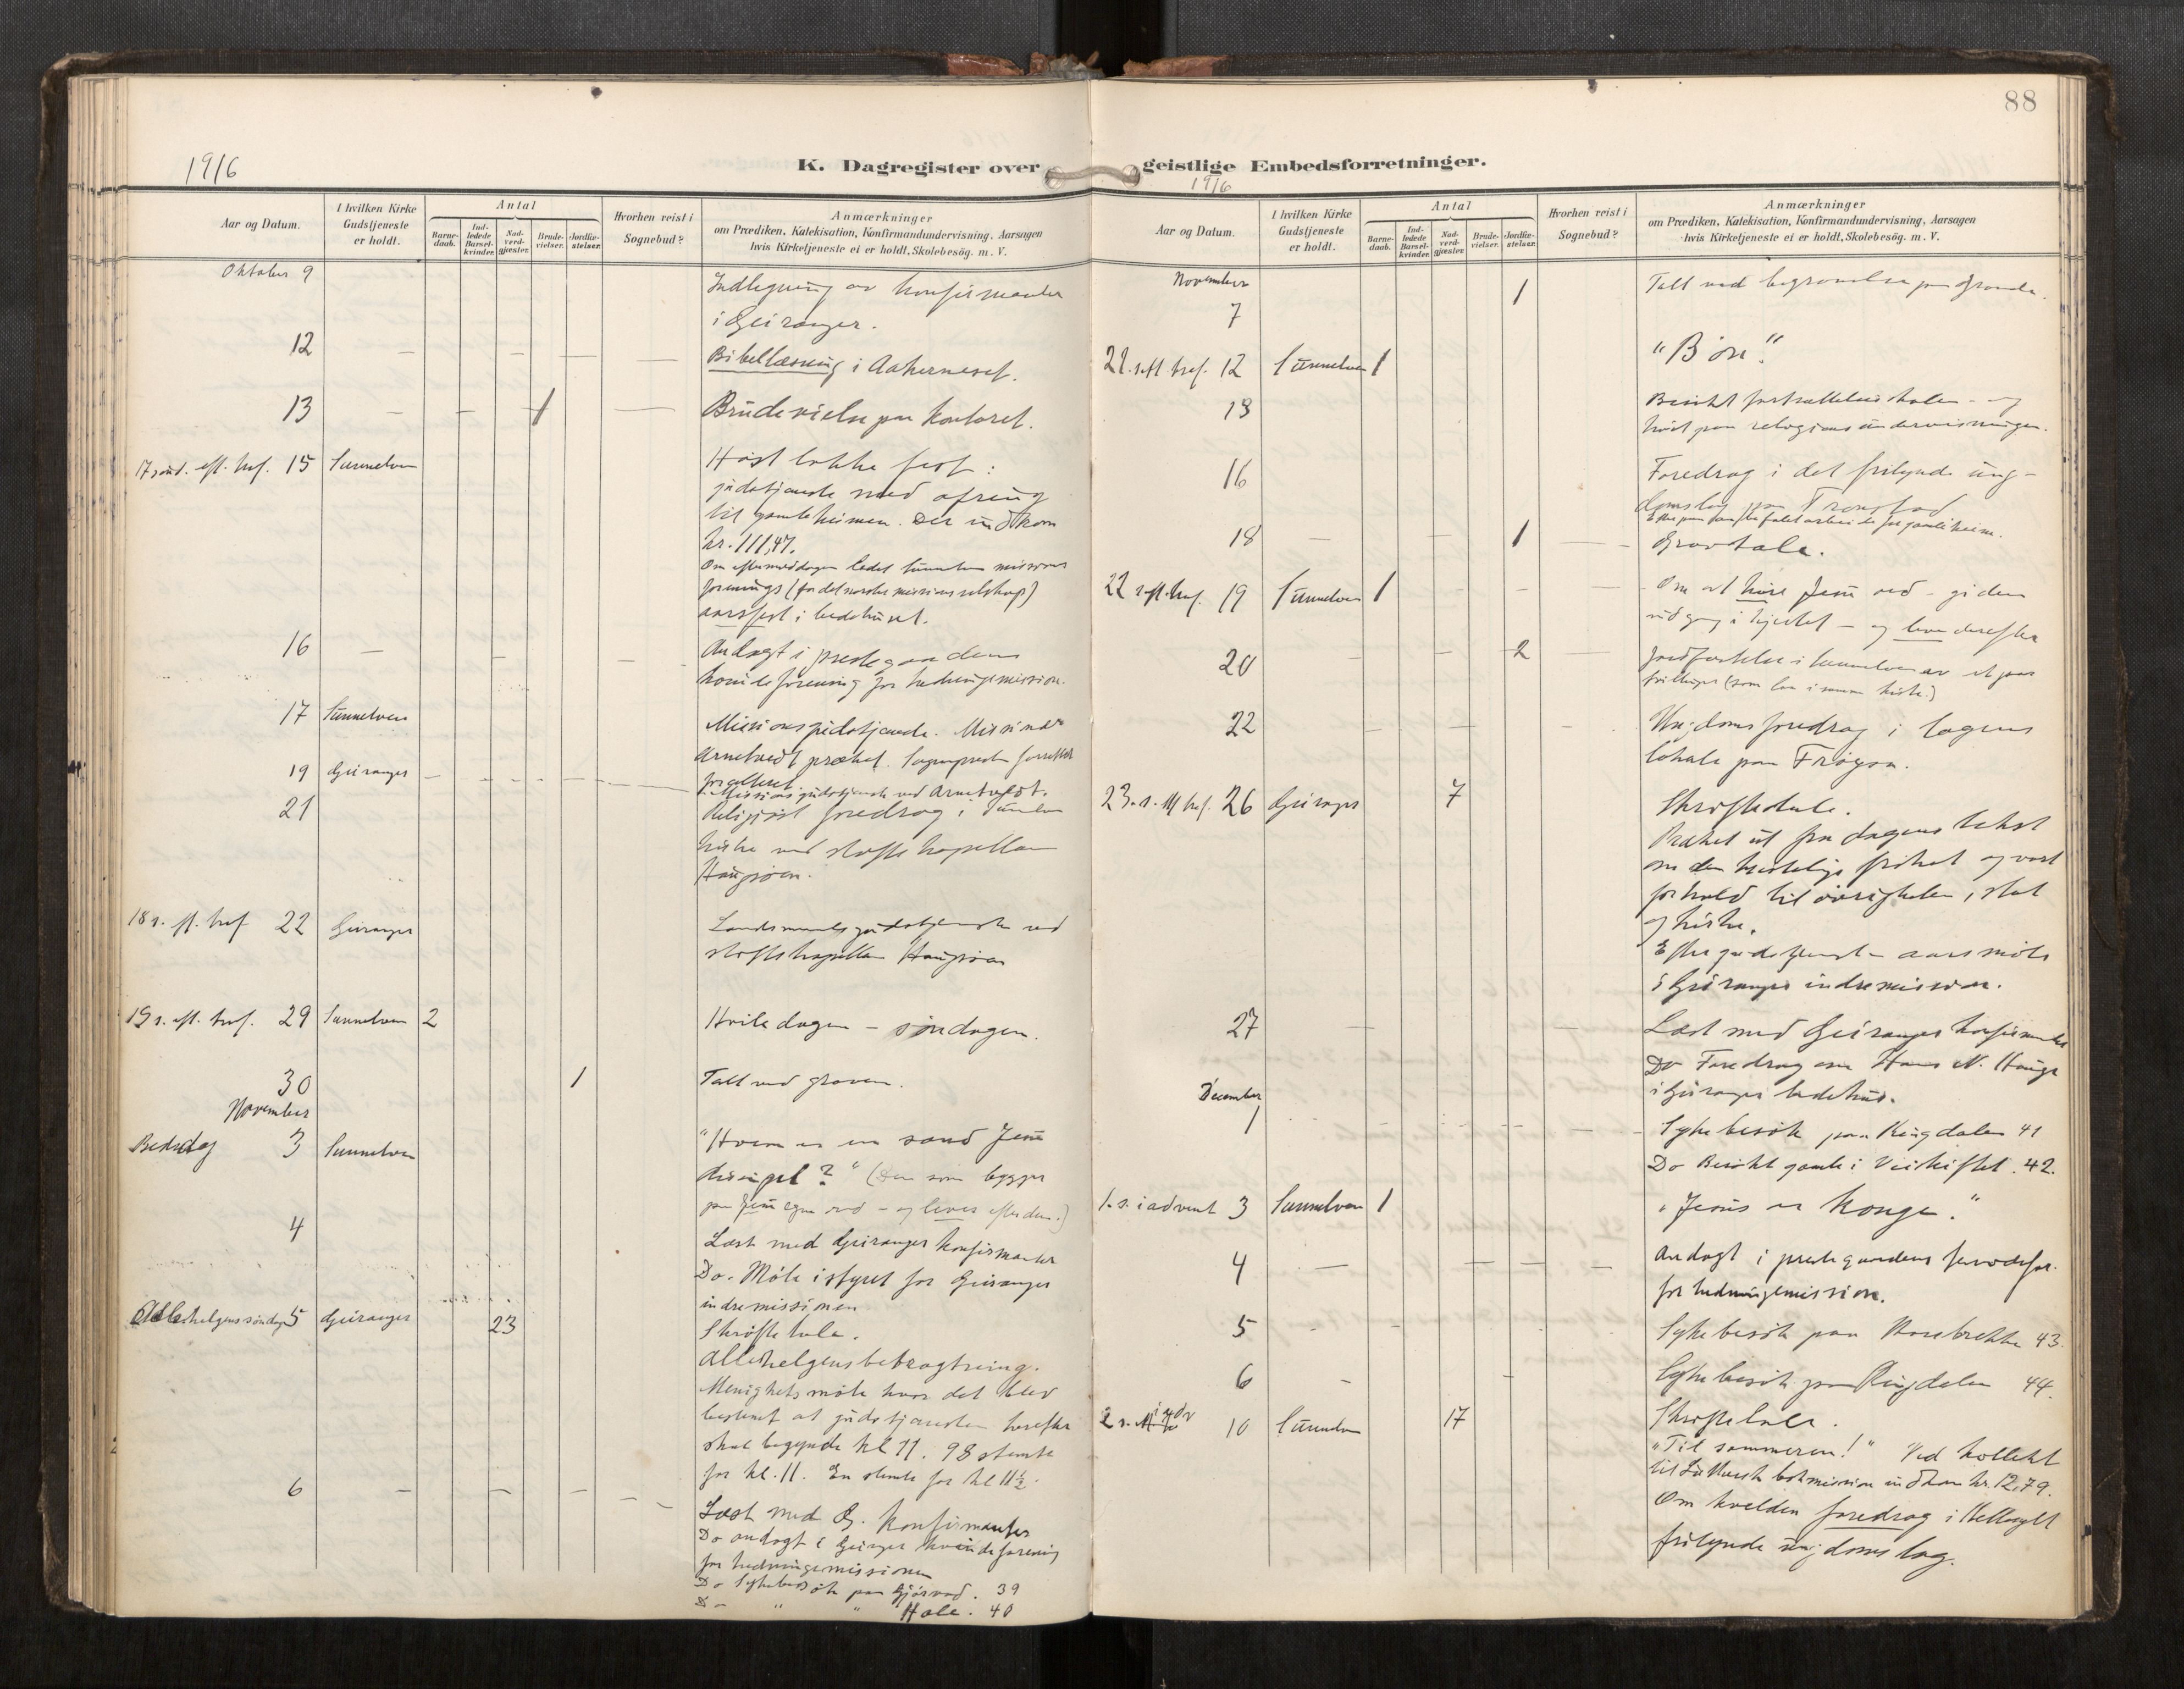 88
1916
K. Dagregister over geistlige Embedsforretninger.
1916
Aar og Datum.
I hvilken Kirke Gudstjeneste er holdt.
Antal
Barne-daab.
Ind-ledede Barsel-kvinder.
Nad-verd-gjester.
Brude-vielser.
Jordfæ-stelser.
Hvorhen reist i Sognebud?
Anmærkninger
om Prædiken, Katekisation, Konfirmandundervisning, Aarsagen
hvis Kirketjeneste ei er holdt, Skolebesøg. m. V.
Oktober 9
Indlegning av konfirmanter
i Geiranger.
12 — — — — Bibellæsning i Aakerneset.
13 — — 1 — Brudevielse paa kontoret.
17 sønd. eft. tref. 15 Sunnelven Høsttakkefest:
gudstjeneste med ofring
til gamleheimen. Der indkom
kr. 111,47.
Om eftermiddagen ledet Sunnelven missions
forenings (for det norske missionsselskap)
aarsfest i bedehuset.
16 — — — Andagt i prestegaardens
kvindeforening for hedningemission.
17 Sunnelven Missionsgudstjeneste. Missionær
Arnetvedt præket. Sognepresten forrettet
for alteret.
19 Geiranger — — — — — — Missionsgudstjeneste ved Arnetvedt.
21 Religiøst foredrag i Sunnelven
kirke ved stiftskapellan
Haugsøen.
18 s. eft. tref 22 Geiranger Landsmaalsgudstjeneste ved
stiftskapellan Haugsøen
19 s. eft. tref. 29 Sunnelven 2 Hviledagen – søndagen.
30 1 Talt ved graven.
November
Bededag 3 Sunnelven "Hvem er en sand Jesu
discipel?" (Den som bygger
paa Jesu egne ord – og lever efter dem.)
4 Læst med Geiranger konfirmanter
Do. Møte i styret for Geiranger
indremissionen
Allehelgenssøndag 5 Geiranger 23 Skriftetale.
Allehelgensbetragtning.
Menighetsmøte hvor det blev
bestemt at gudstjenesten herefter
skal begynde kl 11. 98 stemte
for kl. 11. En stemte for kl 11½.
6 — — — — — Læst med G. konfirmanter
Do andagt i Geiranger kvindeforening
for hedningemissionen
Do Sykebesøk paa Gjørvad. 39
Do " " Hole. 40
Aar og Datum.
I hvilken Kirke Gudstjeneste er holdt.
Antal
Barne-daab.
Ind-ledede Barsel-kvinder.
Nad-verd-gjester.
Brude-vielser.
Jordfæ-stelser.
Hvorhen reist i Sognebud?
Anmærkninger
om Prædiken, Katekisation, Konfirmandundervisning, Aarsagen
hvis Kirketjeneste ei er holdt, Skolebesøg. m. V.
November
7 1 Talt ved begravelse paa
21. s. eft. tref. 12 Sunnelven 1 "Bøn".
13 Besøkt fortsættelsesskolen – og
hørt paa religionsundervisningen.
16 Foredrag i det frilynde ung-
domslag paa Tronstad
18 — — 1 — Gravtale.
22 s. eft. tref. 19 Sunnelven 1 — — — Om at høre Jesu ord – gi dem
indgang i hjertet – og leve derefter
20 — — 2 — Jordfæstelse i Sunnelven av et par
tvillinger (som laa i samme kiste.)
22 — — — Ungdomsforedrag i lagens
lokale paa Frøysa.
23. s. eft tref. 26 Geiranger 7 Skriftetale.
Præket ut fra dagens tekst
om den kristelige frihet og vort
forhold til øvrigheten, stat
og kirke.
Efter gudstjenesten aarsmøte
i Geiranger indremission.
27 — — — Læst med Geiranger konfirmanter
Do Foredrag om Hans N. Hauge
i Geiranger bedehus.
December
1 — — — — Sykebesøk paa Ringdalen 41
Do Besøkt gamle i 42.
1. s. i advent 3 Sunnelven 1 "Jesus er konge."
4 — — — — Andagt i prestegaardens kvindefor.
for hedningemission.
5 — — — Sykebesøk paa 43.
6 — — Sykebesøk paa Ringdalen 44.
2 s. i adv 10 Sunnelven 17 Skriftetale.
"Til sommeren!" Ved kollekt
til Luthersk bokmission indkom kr. 12,79.
Om kvelden foredrag i Hellesylt
frilynde ungdomslag.